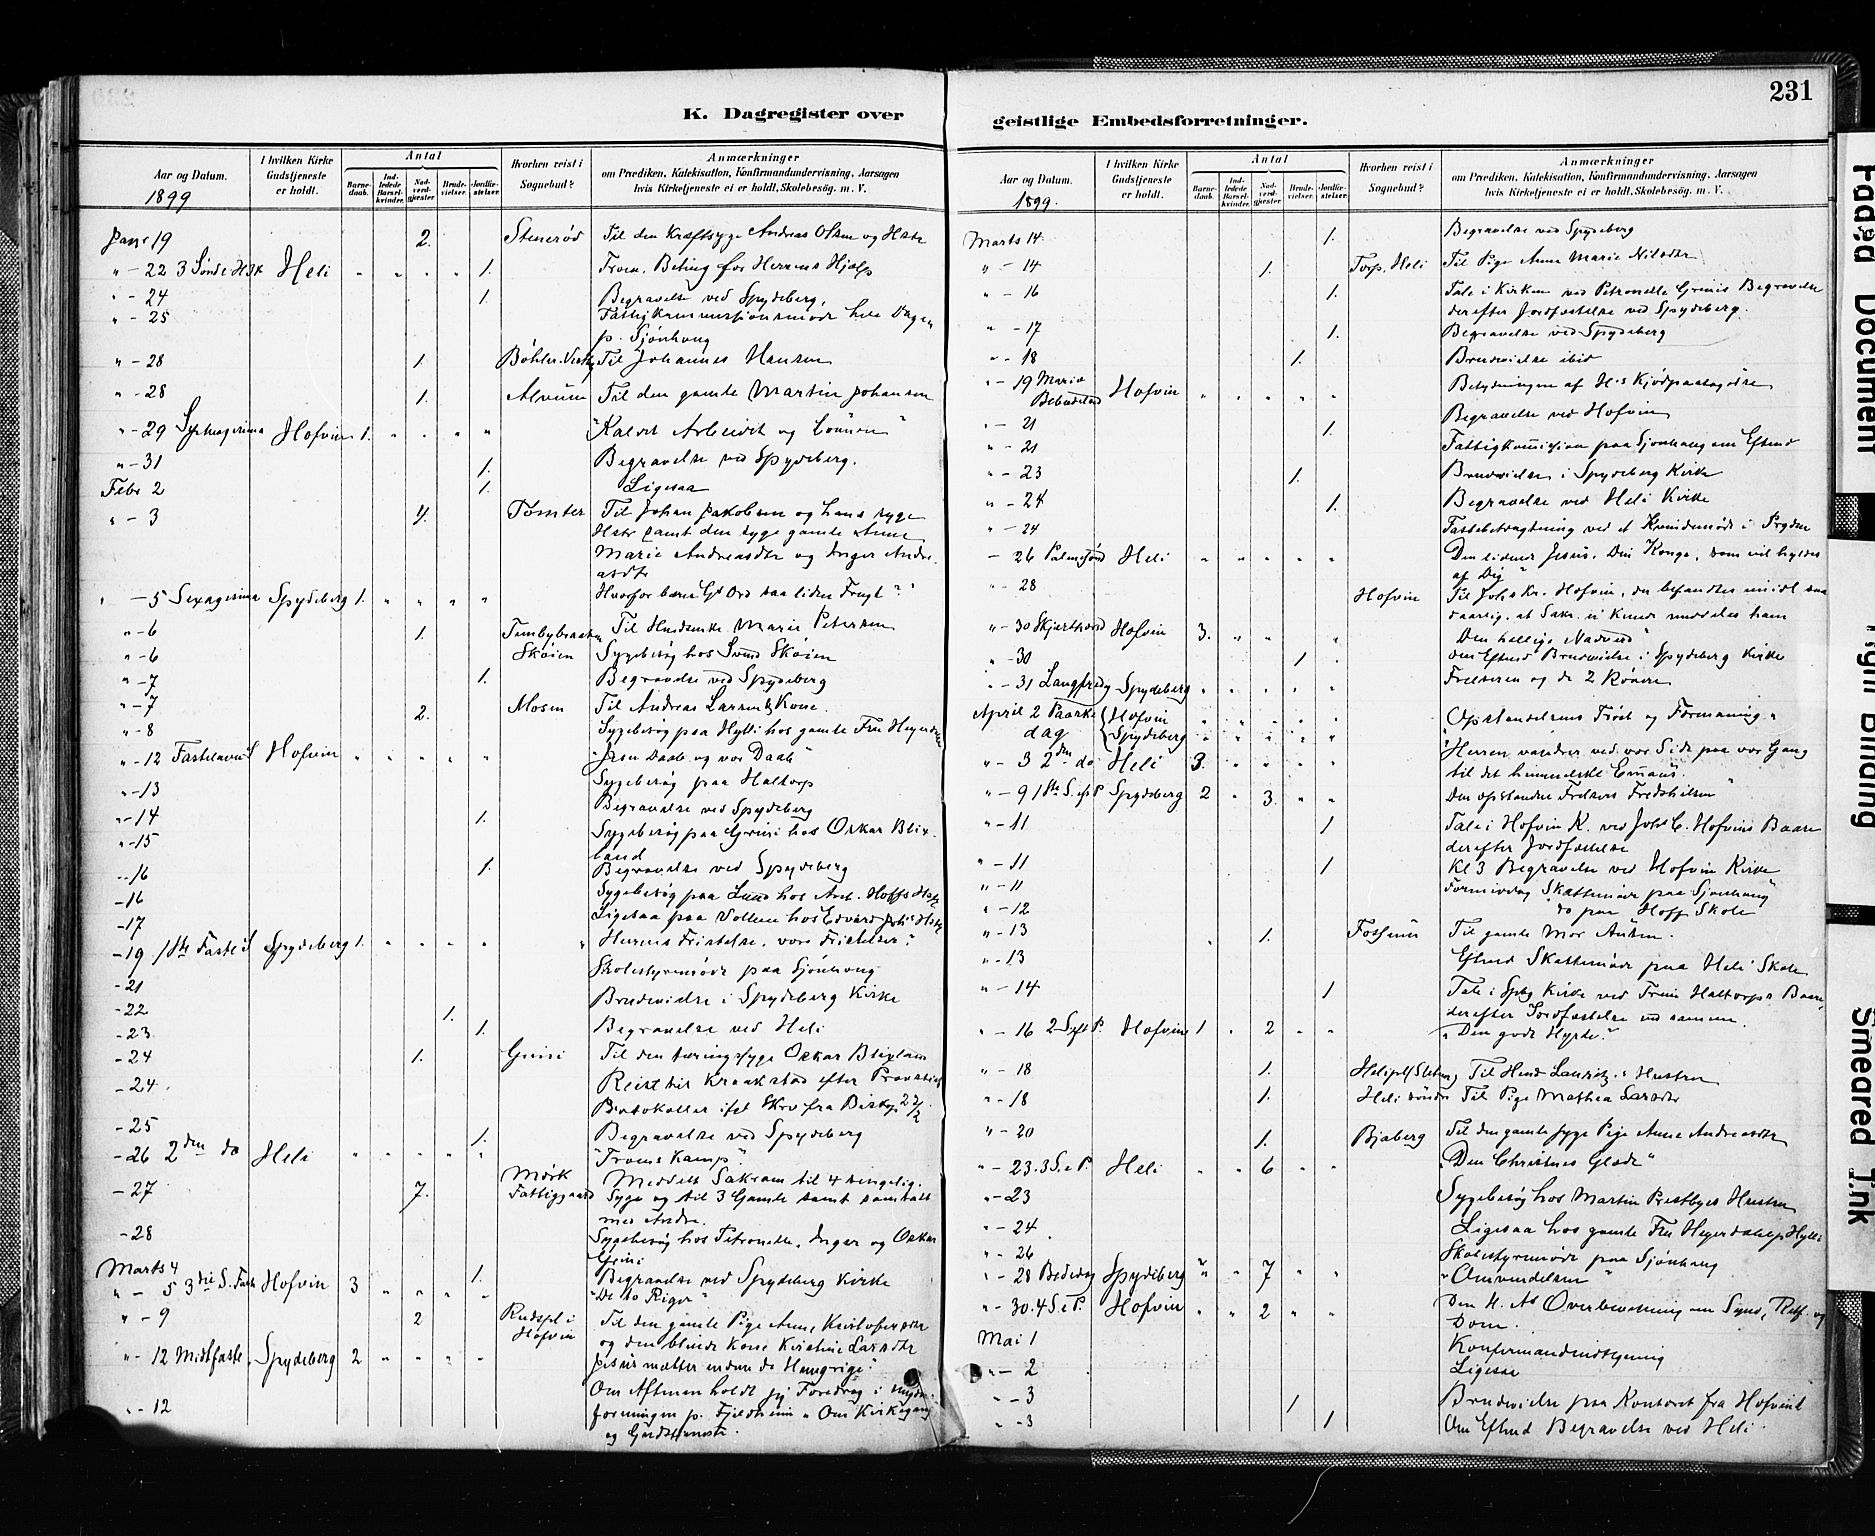 231
K. Dagregister over
geistlige Embedsforretninger.
Aar og Datum.
1899
I hvilken Kirke Gudstjeneste er holdt.
Antal
Barne-daab.
Ind-ledede Barsel-kvinder.
Nad-verd-gjester.
Brude-vielser.
Jordfæ-stelser.
Hvorhen reist i Sognebud?
Anmærkninger
om Prædiken, Katekisation, Konfirmandundervisning, Aarsagen
hvis Kirketjeneste ei er holdt, Skolebesøg. m. V.
Janr 19 2. Stenerød Til den Kræftsyge Andreas Olsen og Hstr
" - 22 3 Sønd. H3K Heli " " " " 1. Troen. Beting for Herrens Hjælp
" - 24 1. Begravelse ved Spydeberg.
" - 25 Fattigkommissionsmøde hele Dagen
p. Sjønhaug
" - 28 1. Til Johannes Hansen
" - 28 1. Til den gamle Martin Johansen
" - 29 Hofvin 1. " " " " "Kaldet Arbeidet og Lønnen"
" - 31 1. Begravelse ved Spydeberg.
Febr 2 1. Ligesaa
" - 3 4. Tomter Til Johan Jakobsen og hans syge
Hstr samt den syge gamle Anne
Marie Andreasdtr og Inger Andre-
asdtr
" - 5 Sexagesima Spydeberg 1. " " " " Hvorfor bærer Gds Ord saa liden Frugt"
" - 6 1. Til Husmske Marie Petersen
" - 6 Skøien Sygebesøg hos Svend Skøien
" - 7 1. Begravelse ved Spydeberg
" - 7 2. Mosen Til Andreas Larsen & Kone.
" - 8 Sygebesøg paa Hylli hos gamle Fru
" - 12 Fastelavns S Hofvin " " " " " "Jesu Daab og vor Daab"
" - 13 Sygebesøg paa Haltorp
" - 14 1. Begravelse ved Spydeberg
" - 15 Sygebesøg paa Grini hos Oskar Blix-
land
" - 16 1. Begravelse ved Spydeberg
- 16 Sygebesøg paa Lund hos Ant. Hoffs Hst
- 17 Ligesaa paa Vollene hos Edvard
- 19 1ste Faste S Spydeberg 1. " " " " "Herrens Fristelse, vore Fristelser."
- 21 Skolestyremøde paa Sjønhaug
- 22 1. Brudevielse i Spydeberg Kirke
- 23 1. Begravelse ved Heli
- 24 1. Grini Til den tæringssyge Oskar Blixland
- 24. Reist til Kraakstad efter Provsti
Protokoller iføl Skrv fra Bisky 23/2.
- 25 1. Begravelse ved Spydeberg
- 26 2den do Heli " " " " " "Troens Kamp".
- 27 7. Mørk Fattiggaard Meddelt Sakram til 4 sengelig.
Syge og til 3 Gamle samt samtalt
med Andre.
- 28 Sygebesøg hos Petronelle, Inger og Oskar
Grini
Marts 4 1. Begravelse ved Spydeberg Kirke
" - 5 3die S. Faste Hofvin 3 " " " " "De to Riger"
" - 9 2 Rudspl i Hofvin Til den gamle Pige Anne Kristofersdtr
og den blinde Kone Kristine Larsdtr
" - 12 Midtfaste Spydeberg 2 " " " " Jesus mætter endnu de Hungrige."
" - 12 Om Aftenen holdt jeg Foredrag i
foreningen p. Fjeldheim "Om Kirkegang
og Gudstjeneste.
Aar og Datum.
1899.
I hvilken Kirke Gudstjeneste er holdt.
Antal
Barne-daab.
Ind-ledede Barsel-kvinder.
Nad-verd-gjester.
Brude-vielser.
Jordfæ-stelser.
Hvorhen reist i Sognebud?
Anmærkninger
om Prædiken, Katekisation, Konfirmandundervisning, Aarsagen
hvis Kirketjeneste ei er holdt, Skolebesøg. m. V.
Marts 14 1. Begravelse ved Spydeberg
" - 14 1. Torp, Heli Til Pige Anne Marie Nilsdtr
" - 16 1. Tale i Kirken ved Petronelle Grinis Begravelse
derefter Jordfæstelse ved Spydeberg.
" - 17 1. Begravelse ved Spydeberg
" - 18 1. Brudevielse ibid
" - 19 Maria Bebudelsd Hofvin " " " " " Betydningen af H's Kjødpaatagelse
" - 21 1. Begravelse ved Hofvin
" - 21 Fattigkommision paa Sjønhaug om Eftmd
" - 23 1. Brudevielse i Spydeberg Kirke
" - 24 1. Begravelse ved Heli Kirke
" - 24 Fastebetragtning ved et Kvindemøde i
- 26 Palmesønd Heli " " " " " Den lidende Jesus, Din Konge, som vil hyldes
af Dig"
" - 28 Hofvin Til Johs Kr. Hofvin, der befandtes imidl saa
daarlig, at Sakr. ei kunde meddeles ham
" - 30 Skjærtorsd Hofvin 3. " " " "Den hellige Nadverd"
" - 30 1 Om Eftmd Brudevielse i Spydeberg Kirke
" - 31 Langfredg Spydeberg " " " " " Frelseren og de 2 Røvere
April 2 Paaske dag Hofvin Spydeberg "Opstandelsens Trøst og Formaning"
" - 3 2den do Heli 3. " " " " "Herren vandrer ved vor Side paa vor Gang
til det himmelske Emaus."
" - 9 1ste S. eft P Spydeberg 2 " 3. " " Den opstandne Frelsers Fredshilsen"
" - 11 1 Tale i Hofvin K. ved Johs C. Hofvins Baare
derefter Jordfæstelse
" - 11 1 Kl 3 Begravelse ved Hofvin Kirke
" - 11 Formiddag Skattemøde paa Sjønhaug
" - 12 do paa Hoff Skole
" - 13 1. Til gamle Mor
" - 13 Eftmd Skattemøde paa Heli Skole
" - 14 1 Tale i Spbg Kirke ved Haltorps Baare,
derefter Jordfæstelse ved samme.
" - 16 2 S eft P. Hofvin 1 " 2 " " "Den gode Hyrde."
" - 18 1. Til Hmd Lauritz.s Hustru
" - 18 1. Heli søndre Til Pige Mathea Larsdtr
" - 20 1. Bjaberg Til den gamle syge Pige Anne Andreasdtr
" - 23. 3 S. e P. Heli " " 6 " " "Den Christnes Glæde"
" - 23 Sygebesøg hos Martin Prestbyes Hustru
" - 24. Ligesaa hos gamle Fru Heyerdahl p Hylli
" - 26 Skolestyremøde paa Sjønhaug
" - 28 Bededag Spydeberg " " 7 " " "Omvendelsen"
" - 30. 4 S. e P. Hofvin " " 2 " " Den H. Ads Overbevisning om Synd, Retf. og
Dom.
Mai 1 Konfirmandindtegning
" - 2 Ligesaa
" - 3 1 Brudevielse paa Kontoret fra Hofvin
" - 3 1 Om Eftmd Begravelse ved Heli
Faded Document
Tight Binding
Smeared Ink